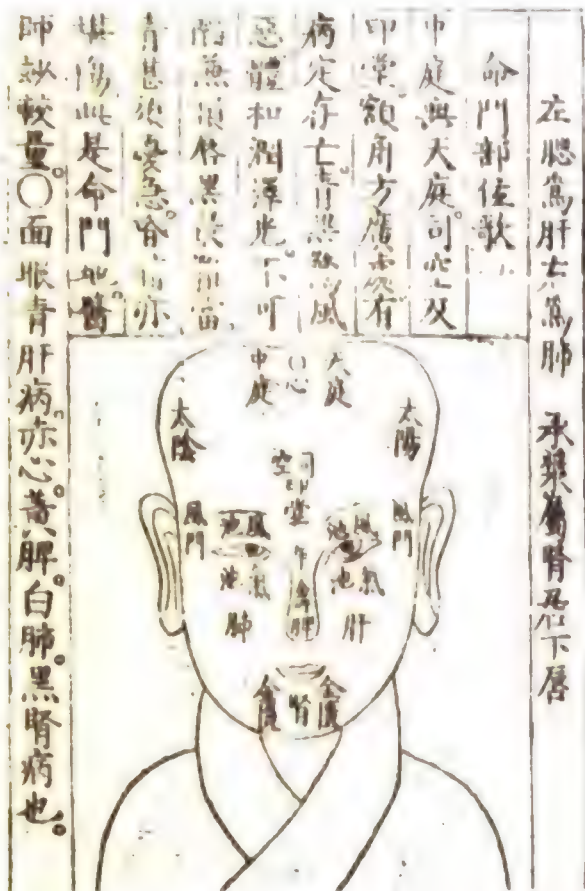 左腮為肝右為肺 承漿屬腎居下唇
命門部位歌
中庭與天庭司空及
印堂額角方廣處有
病定存亡青黑驚風
惡體和潤澤光不可
陷兼損唇黑
青甚須憂急昏暗亦
堪傷此是命門地醫
師妙較量○面眼青肝病。赤心。黃脾。白肺。黑腎病也。
天庭
心
中庭
太陽
太陰
司空
印堂
風門
風門
風池
風池
氣池
氣池
準脾
肝
肺
金匱
腎
金匱